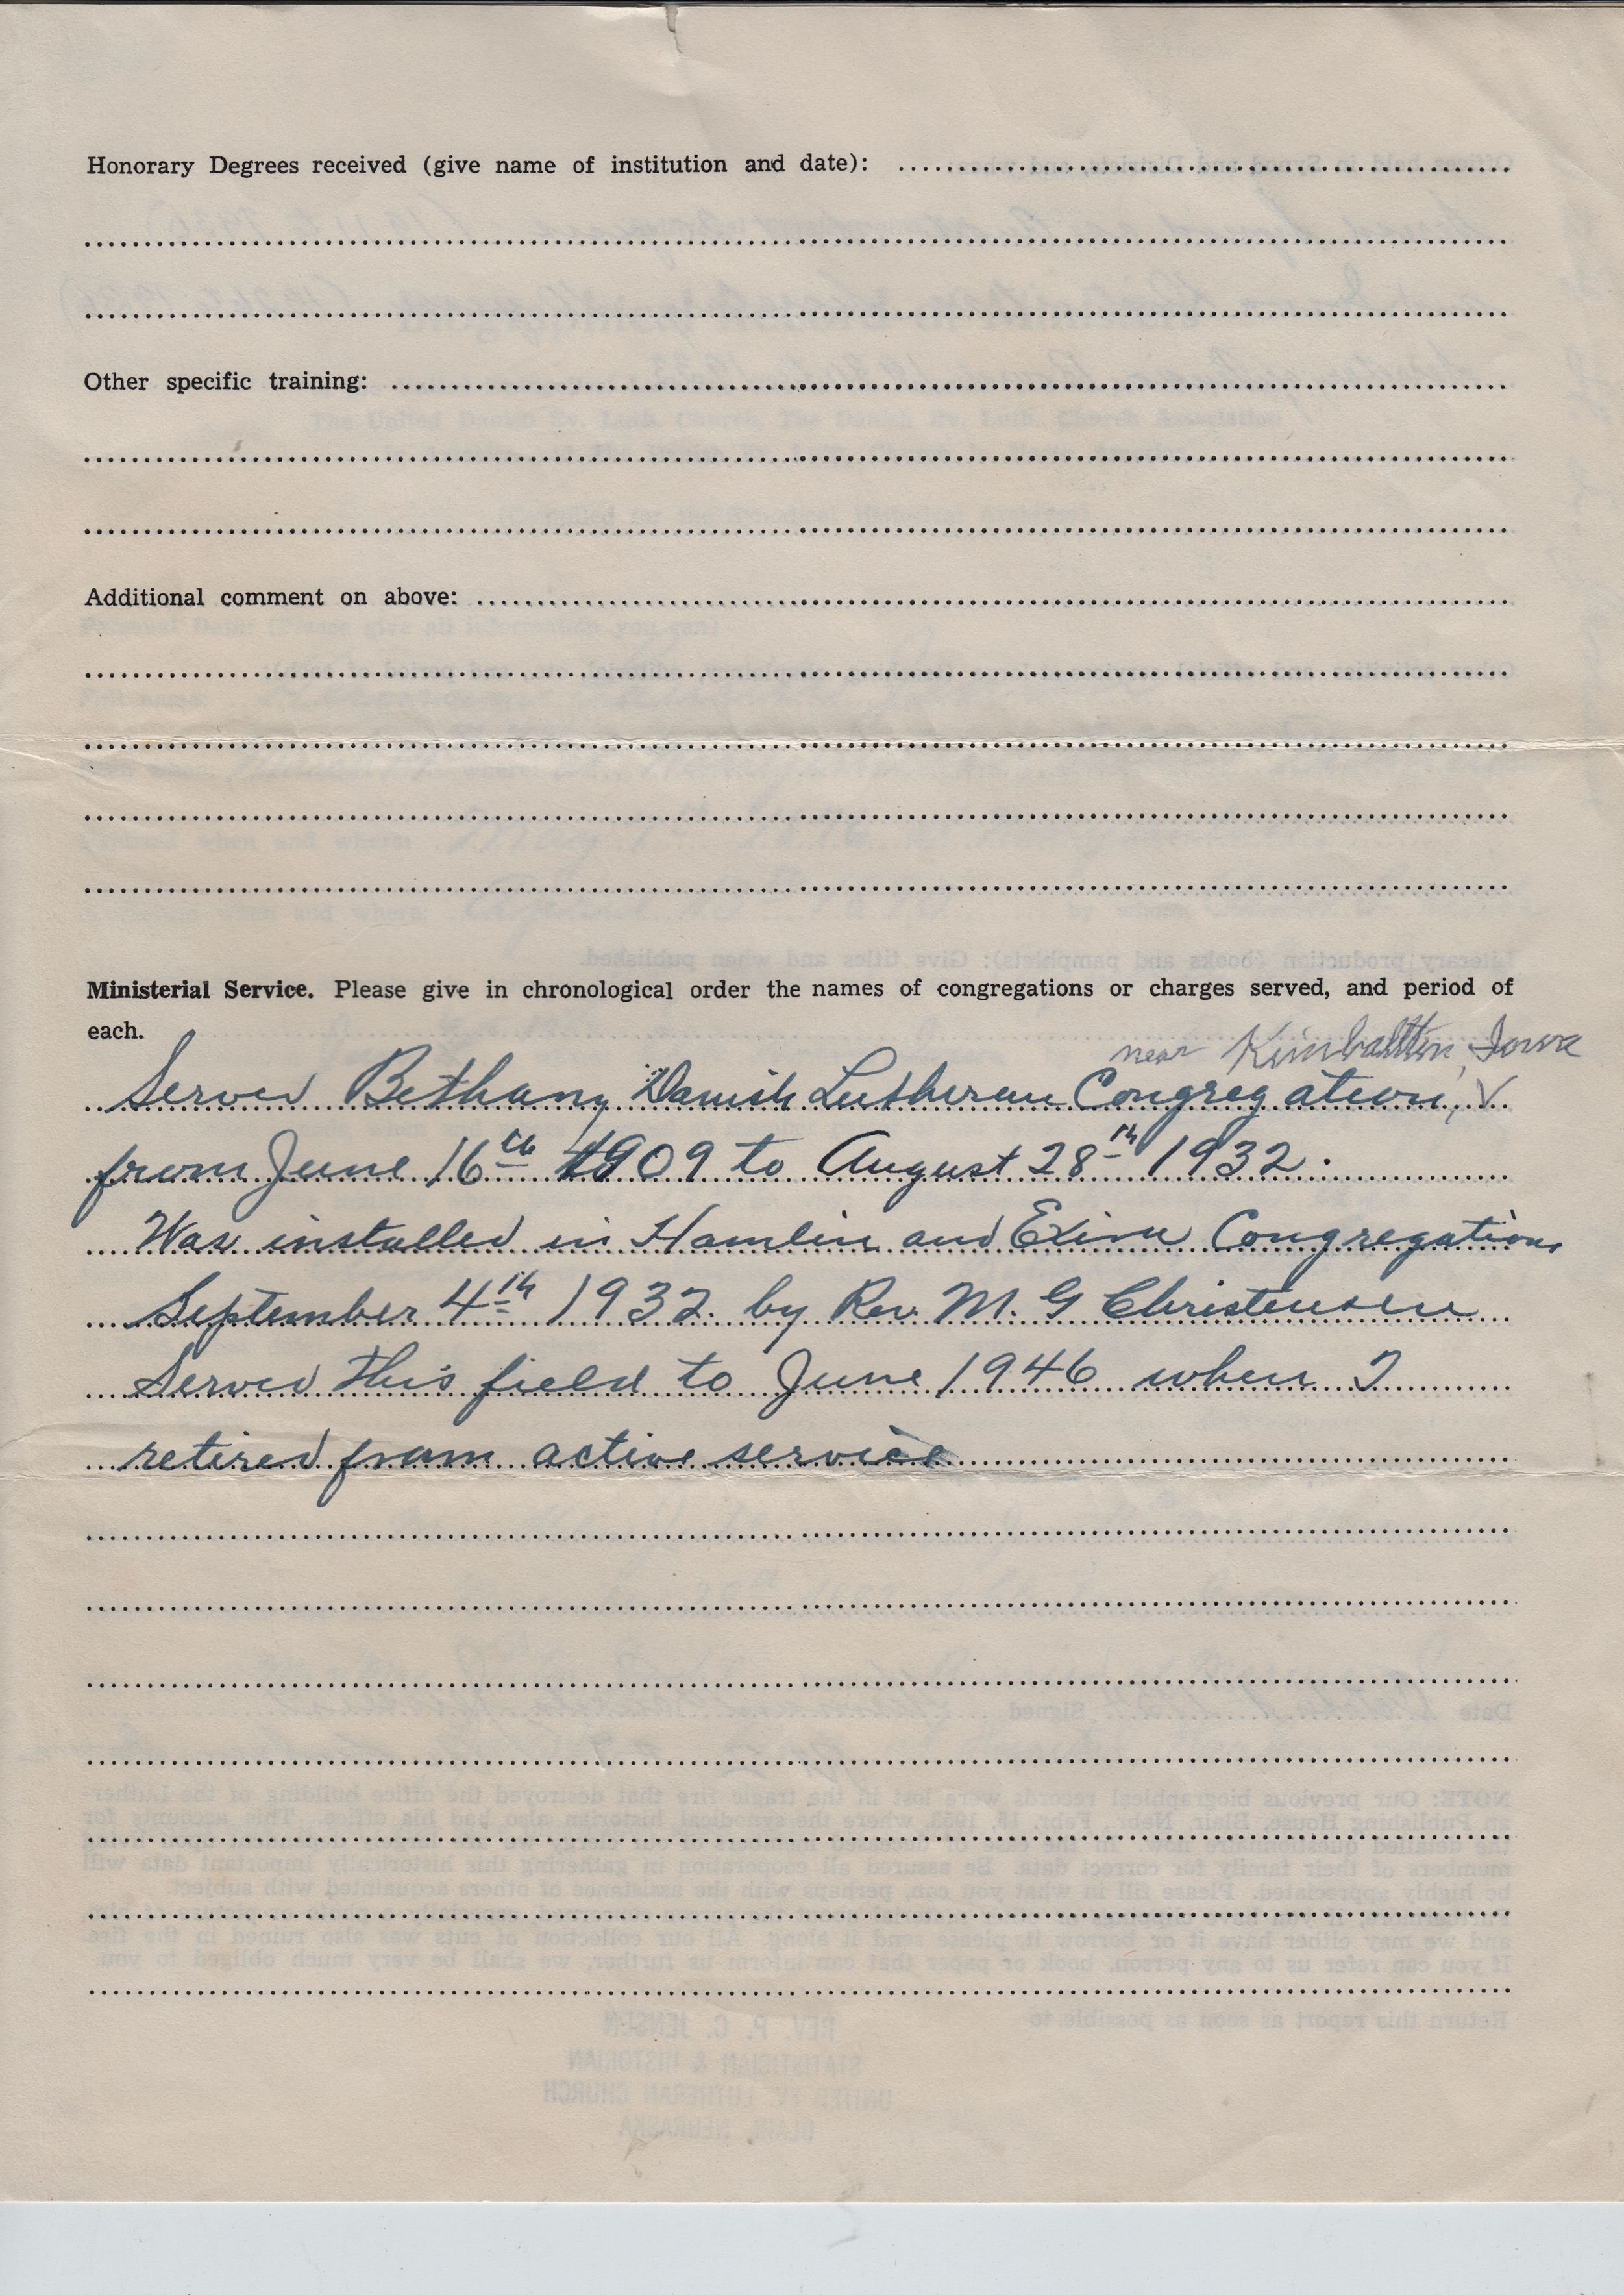 Honorary Degrees received (give name of institution and date):
Other specific training:
Additional comment on above:
Ministerial Service. Please give in chronological order the names of congregations or charges served, and period of
each.
near Kimballton, Iowa
Served Bethany Danish Lutheran Congregation, V
from June 16th 1909 to August 28th 1932.
Was installed in Hamlin and Exira Congregations
September 4th 1932. by Rev. M. G Christensen
Served this field to June 1946 when I
retired from active service